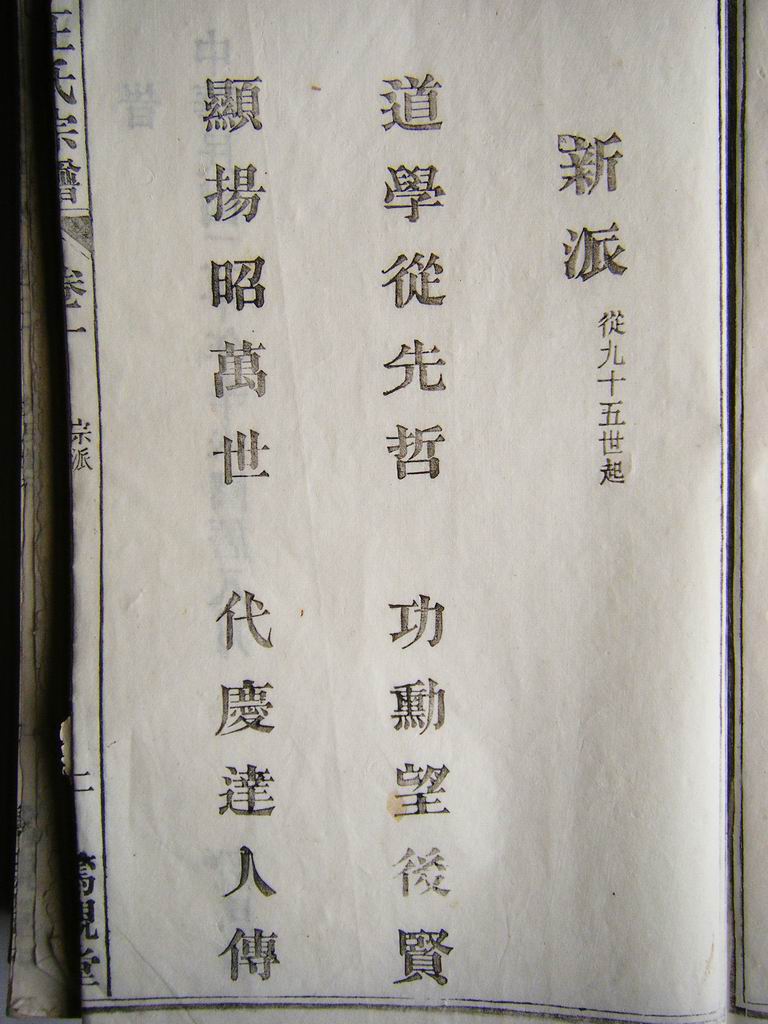 新派 從九十五世起
道學從先哲 功勳望後賢
顯揚昭萬世 代慶達人傳
氏宗譜
卷一
宗派